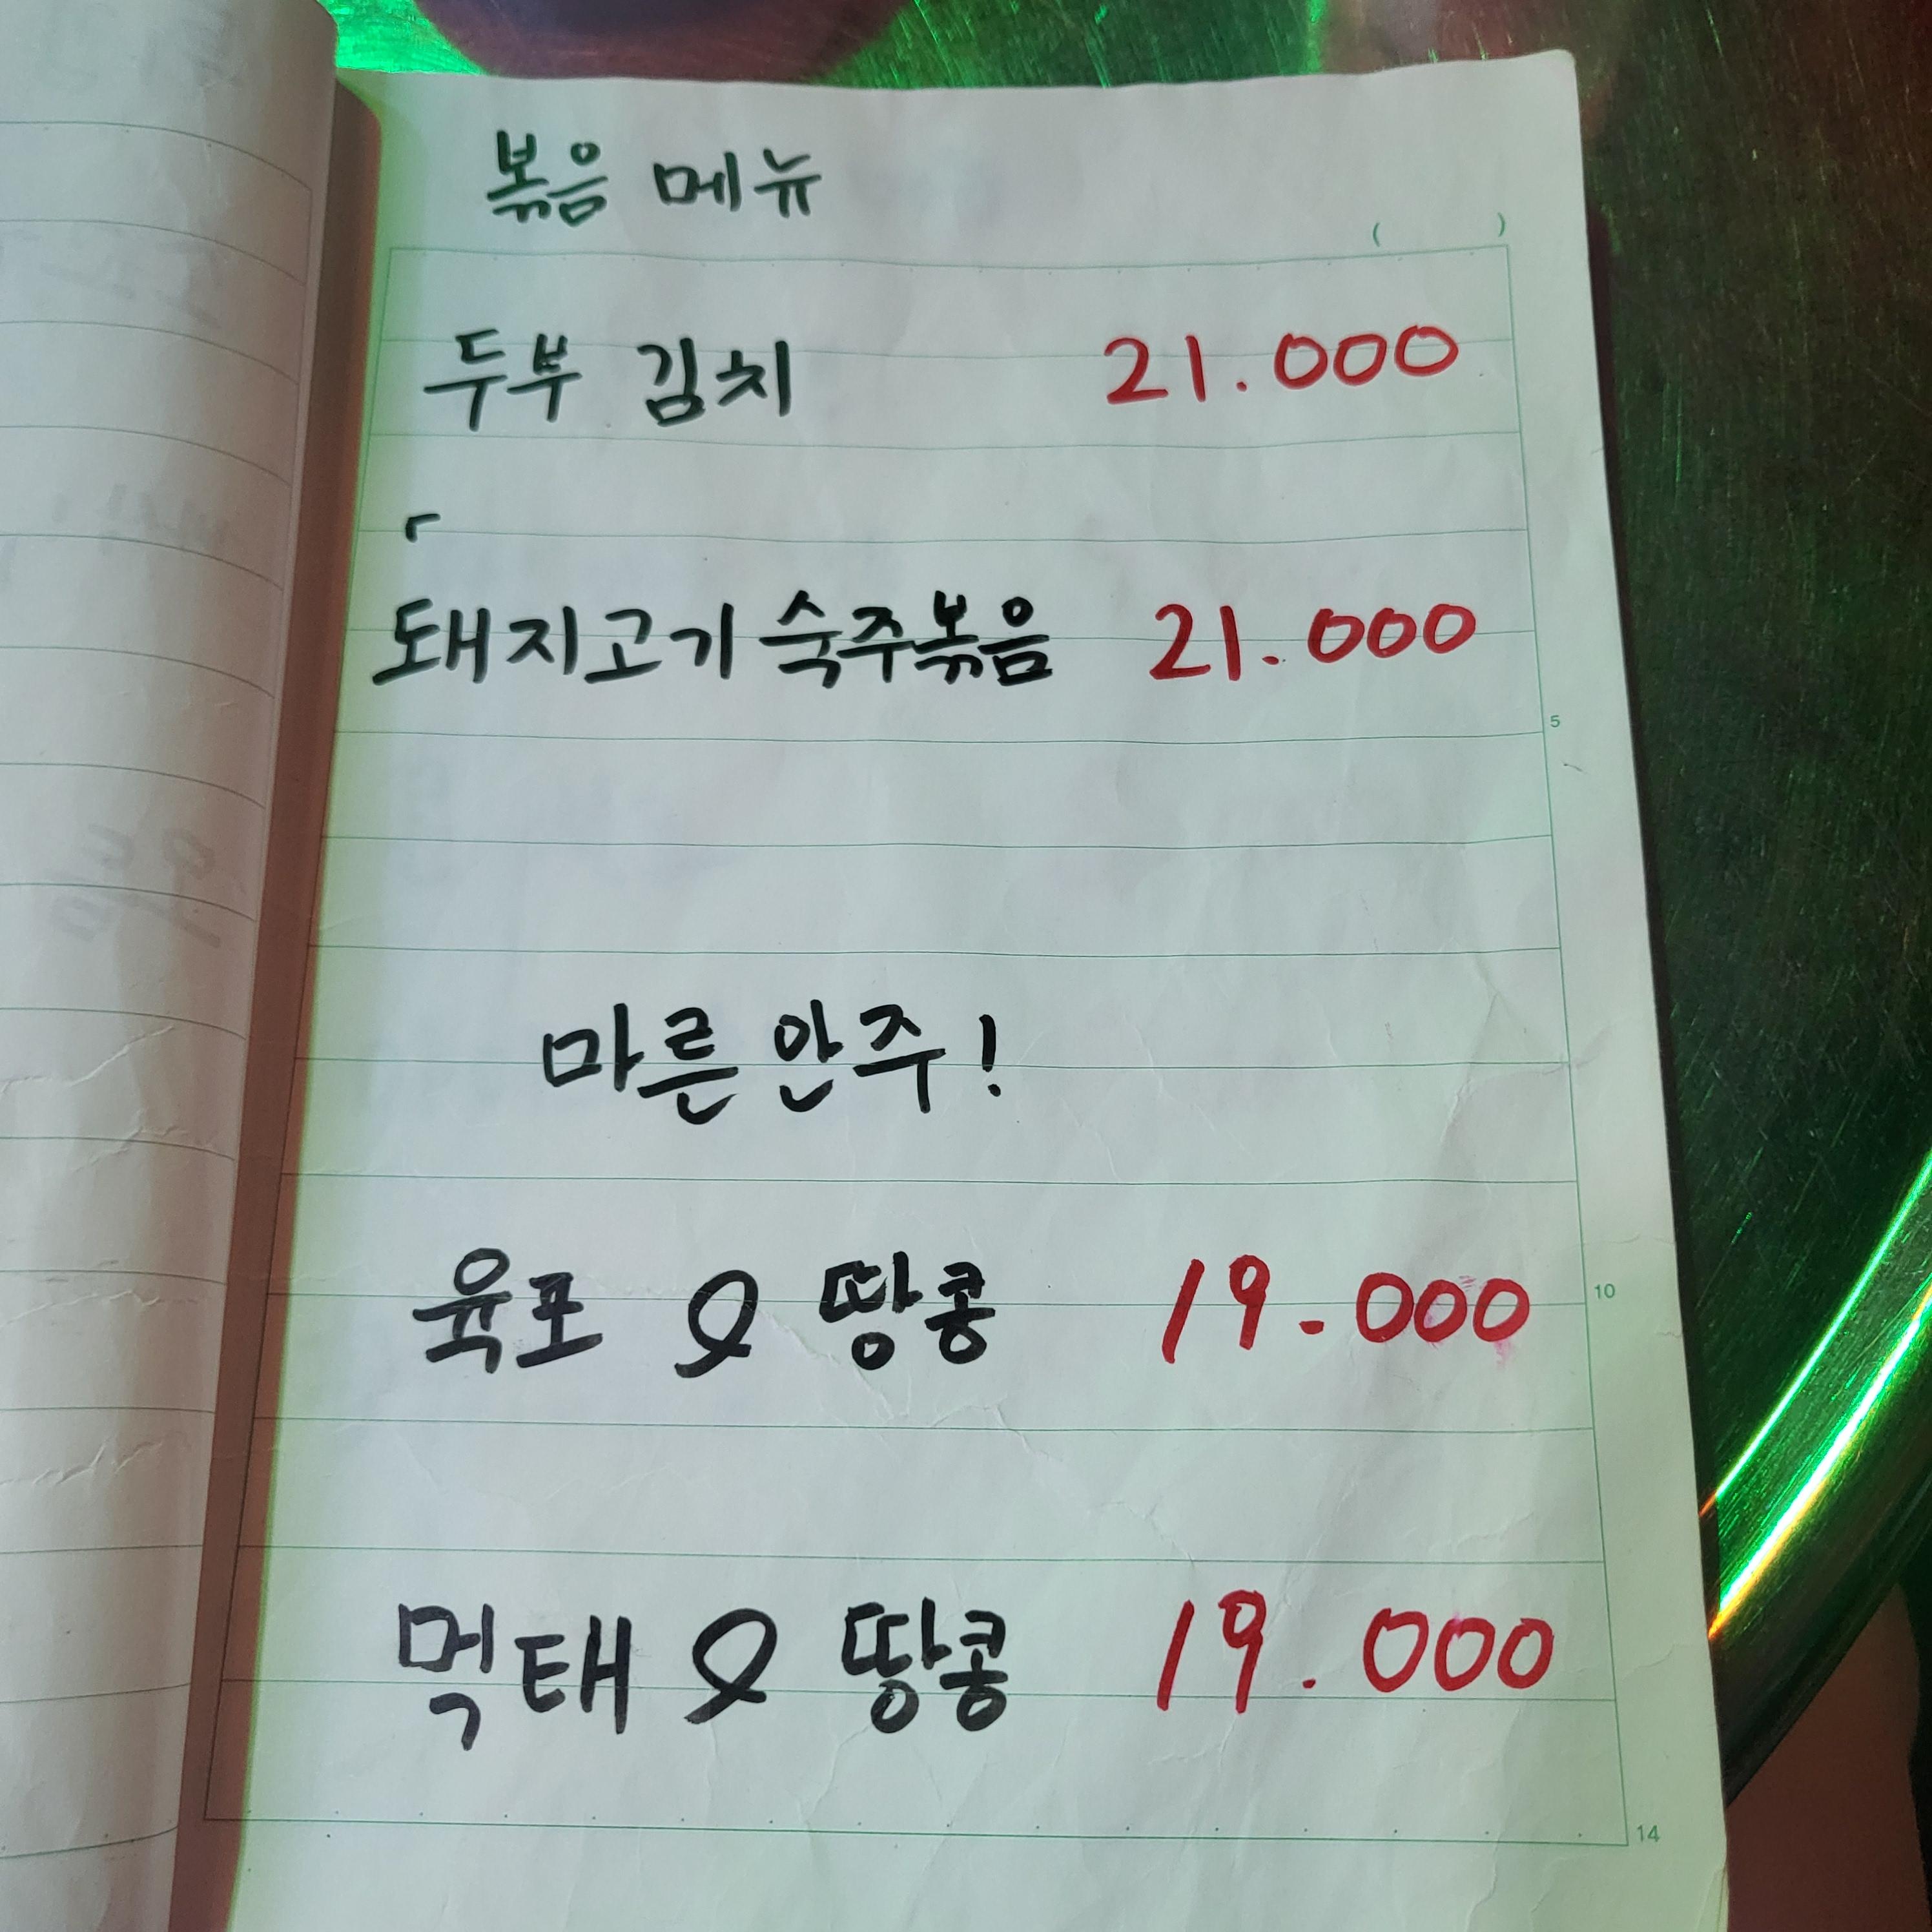 볶음 메뉴
( )
두부 김치 21.000
「
돼지고기 숙주볶음 21.000
5
마른 안주!
육포 & 땅콩 19.000
10
먹태 & 땅콩 19.000
14